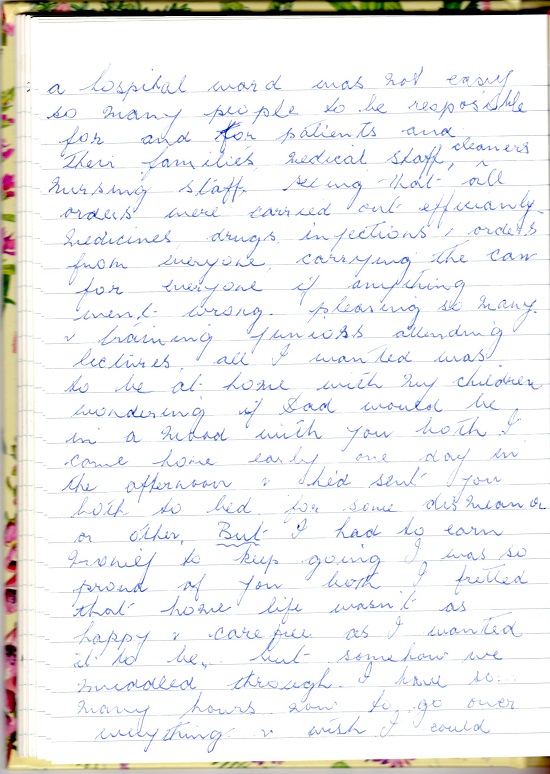 a hospital ward was not easy
so many people to be resposible
for and for patients and
their families, medical staff, cleaners
nursing staff, seeing that all
orders were carried out efficiantly.
medicines, drugs, injections, orders
from everyone, carrying the can
for everyone if anything
went wrong. pleasing so many.
& training juniors attending
lectures, all I wanted was
to be at home with my children
wondering if Dad would be
in a mood with you both I
came home early one day in
the afternoon & he'd sent you
both to bed for some dismeanor
or other. But I had to earn
money to keep going I was so
proud of you both I fretted
that home life wasn't as
happy & care free as I wanted
it to be, but somehow we
muddled through. I have so
many hours now to go over
everything & wish I could